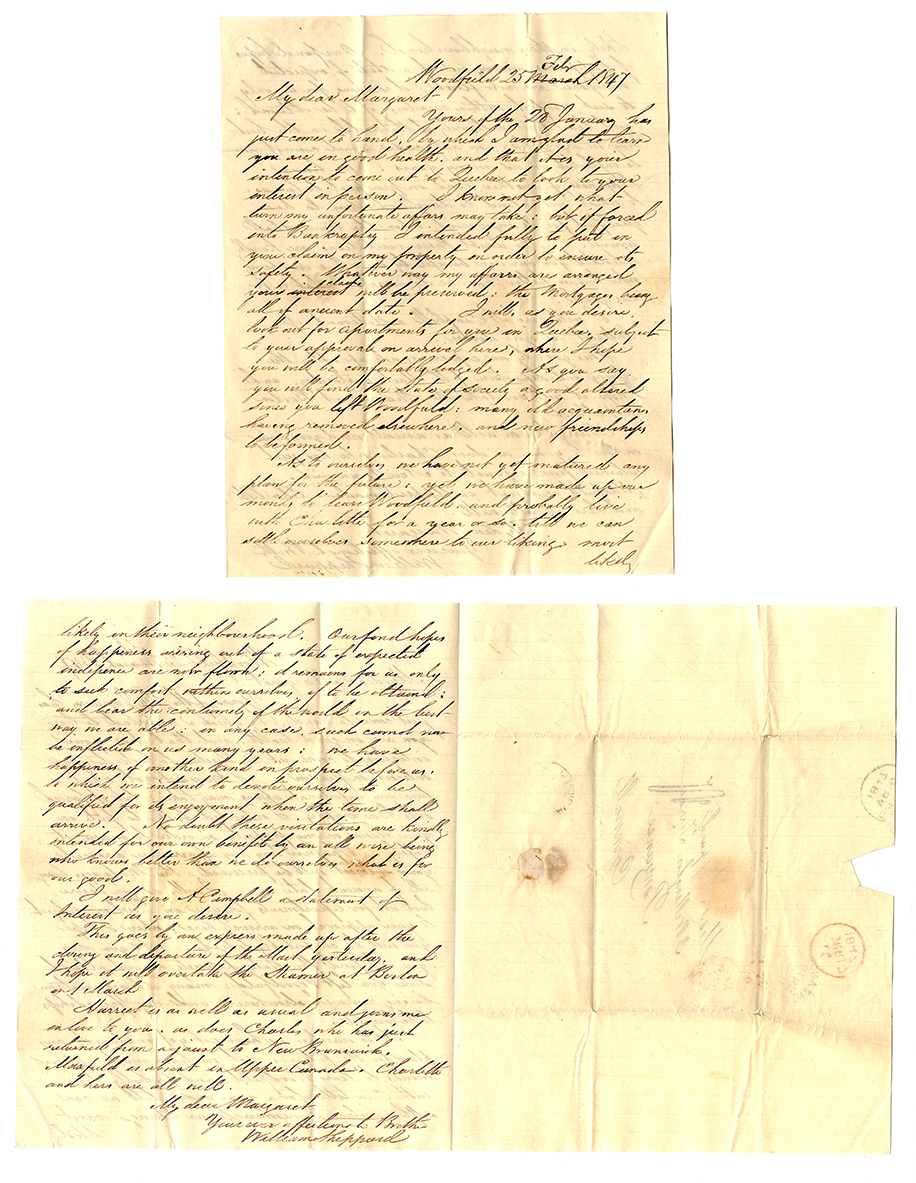 Feb
Woodfield 25 March 1847
My dear Margaret
Yours of the 28 January has
just come to hand, by which I am glad to learn
you are in good health, and that it is your
intention to come out to Quebec to look to your
interest in person. I know not yet what
turn my unfortunate affairs may take; but if forced
into Bankruptcy I intended fully to put in
your claim on my property in order to ensure its
safety. Whatever way my affairs are arranged
claim
your interest will be preserved; the Mortgages being
all of ancient date. I will, as you desire,
look out for apartments for you in Quebec, subject
to your approval on arrival here, where I hope
you will be comfortably lodged. As you say
you will find the State of society a good altered
since you left Woodfield; many old acquaintans
having removed elsewhere, and new friendships
to be formed.
As to ourselves we have not yet matured any
plan for the future; yet we have made up our
minds to leave Woodfield, and probably live
with Charlotte for a year or so, till we can
settle ourselves somewhere to our liking, most
likely
likely in their neighbourhood. Our fond hopes
of happiness arising out of a state of expected
indepence are now flown; it remains for us only
to seek comfort within ourselves, if to be obtained;
and bear the contumely of the world in the best
way we are able; in any case, such cannot now
be inflicted on us many years; we have
happiness of another kind in prospect before us,
to which we intend to devote ourselves to be
qualified for its enjoyment when the time shall
arrive. No doubt these visitations are kindly
intended for our own benefit by an all wise being
who knows better than we do ourselves what is for
our good.
I will give A Campbell a statement of
Interest as you desire.
This goes by an express made up after the
closing and departure of the Mail yesterday, and
I hope it will overtake the Steamer at Boston
on 1 March
Harriet is as well as usual and joins me
in love to you, as does Charles who has just
returned from a jaunt to New Brunswick.
Maxfield is absent in Upper Canada. Charlotte
and hers are all well.
My dear Margaret
Your ever affectionate Brothr
William Sheppard